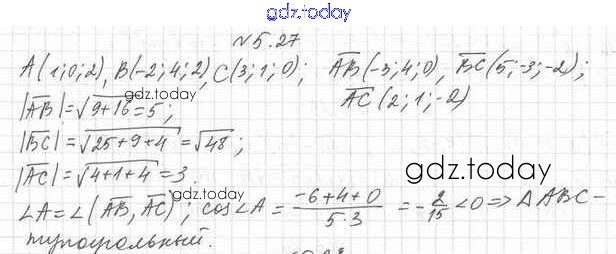 gdz.today
№5.27
A(1;0;2), B(-2;4;2), C(3;1;0); AB(-3;4;0), BC(5;-3;-2);
AC(2;1;-2)
|AB|=√9+16=5;
gdz.today
|BC|=√25+9+4=√48;
|AC|=√4+1+4=3.
gdz.today
gdz.today
∠A=∠(AB, AC); cos∠A= -6+4+0/5·3 = -2/15 <0 => ΔABC-
тупоугольный.